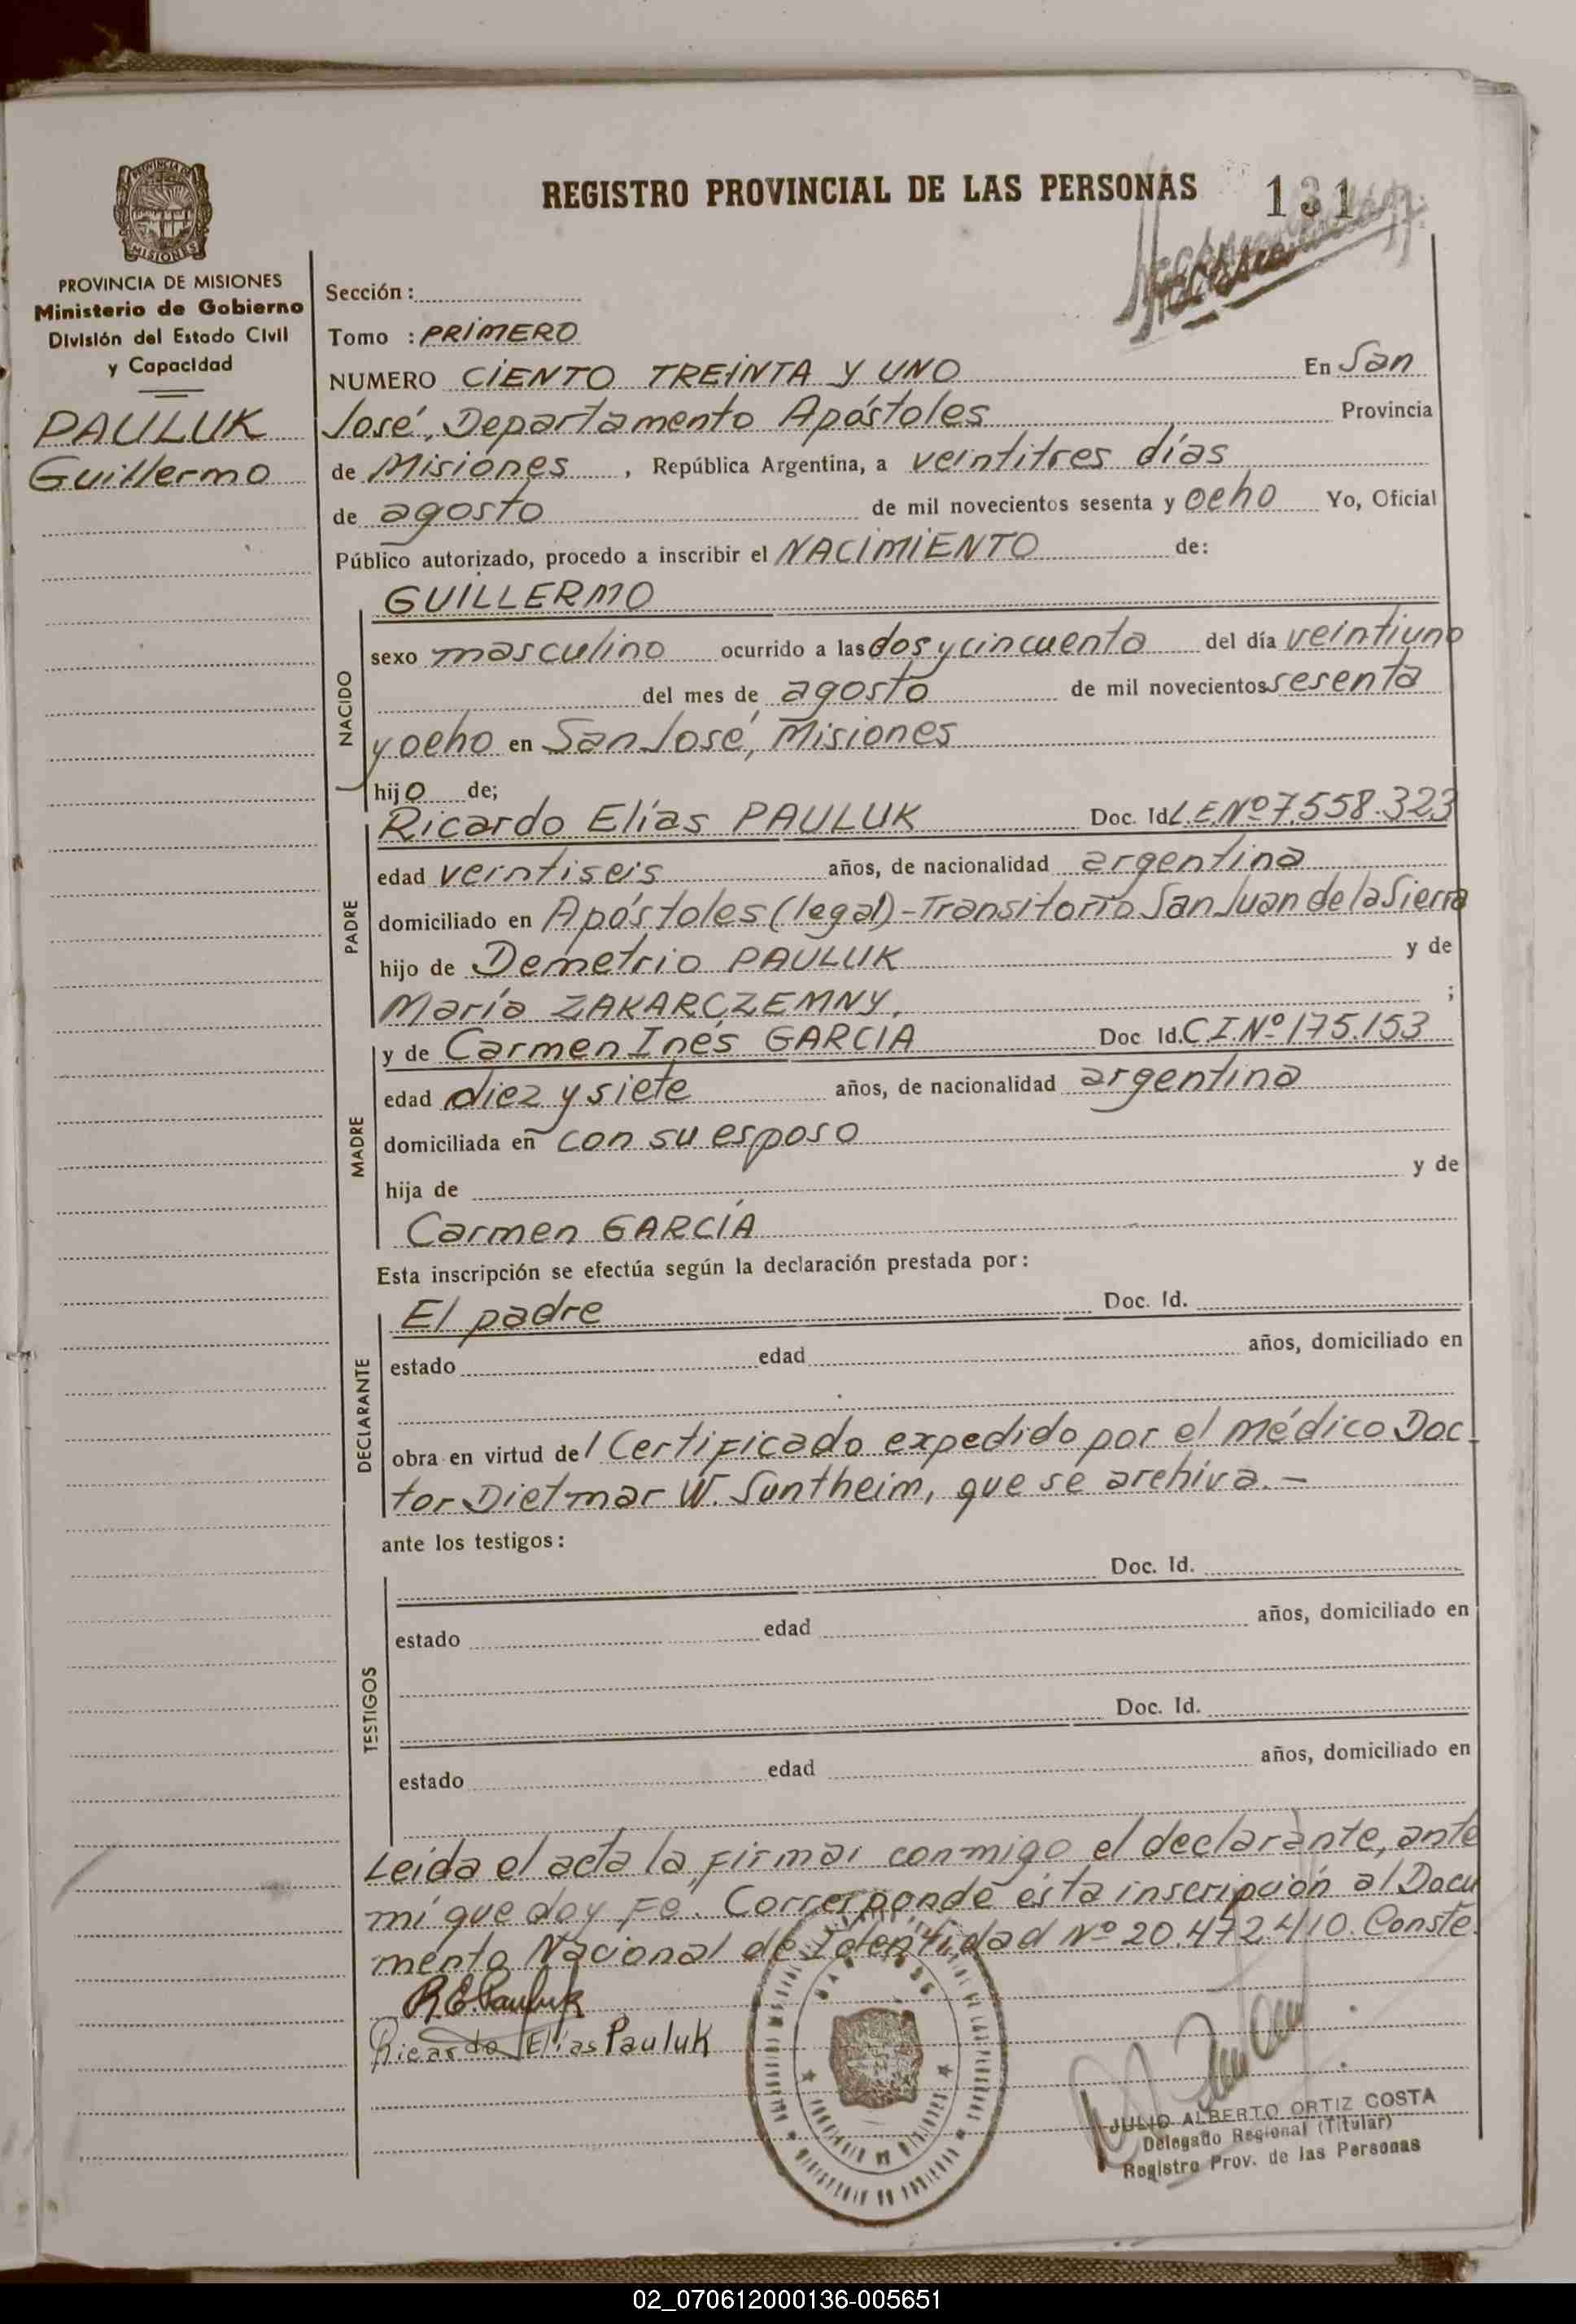 REGISTRO PROVINCIAL DE LAS PERSONAS 131
PROVINCIA DE
MISIONES
PROVINCIA DE MISIONES
Ministerio de Gobierno
División del Estado Civil
y Capacidad
PAULUK
Guillermo
Sección:
Tomo : PRIMERO
NUMERO CIENTO TREINTA Y UNO En San
José, Departamento Apóstoles Provincia
de Misiones, República Argentina, a veintitres días
de agosto de mil novecientos sesenta y ocho Yo, Oficial
Público autorizado, procedo a inscribir el NACIMIENTO de:
GUILLERMO
NACIDO
sexo masculino ocurrido a las dos y cincuenta del día veintiuno
del mes de agosto de mil novecientos sesenta
y ocho en San José, Misiones
hijo de;
PADRE
Ricardo Elías PAULUK Doc. Id. L.E.Nº 7.558.323
edad veintiseis años, de nacionalidad argentina
domiciliado en Apóstoles (legal) - Transitorio San Juan de la Sierra
hijo de Demetrio PAULUK y de
María ZAKARCZEMNY. ;
MADRE
y de Carmen Inés GARCIA Doc. Id. C.I.Nº 175.153
edad diez y siete años, de nacionalidad argentina
domiciliada en con su esposo
hija de y de
Carmen GARCÍA
Esta inscripción se efectúa según la declaración prestada por:
DECLARANTE
El padre Doc. Id.
estado edad años, domiciliado en
obra en virtud del Certificado expedido por el médico Doc
tor Dietmar W. Suntheim, que se archiva. -
ante los testigos:
TESTIGOS
Doc. Id.
estado edad años, domiciliado en
Doc. Id.
estado edad años, domiciliado en
Leída el acta la firma conmigo el declarante, ante
mí que doy Fé. Corresponde ésta inscripción al Docu
mento Nacional de Identidad Nº 20.472.410. Conste.
R.E.Pauluk
Ricardo Elías Pauluk
JULIO ALBERTO ORTIZ COSTA
Delegado Regional (Titular)
Registro Prov. de las Personas
02_070612000136-005651